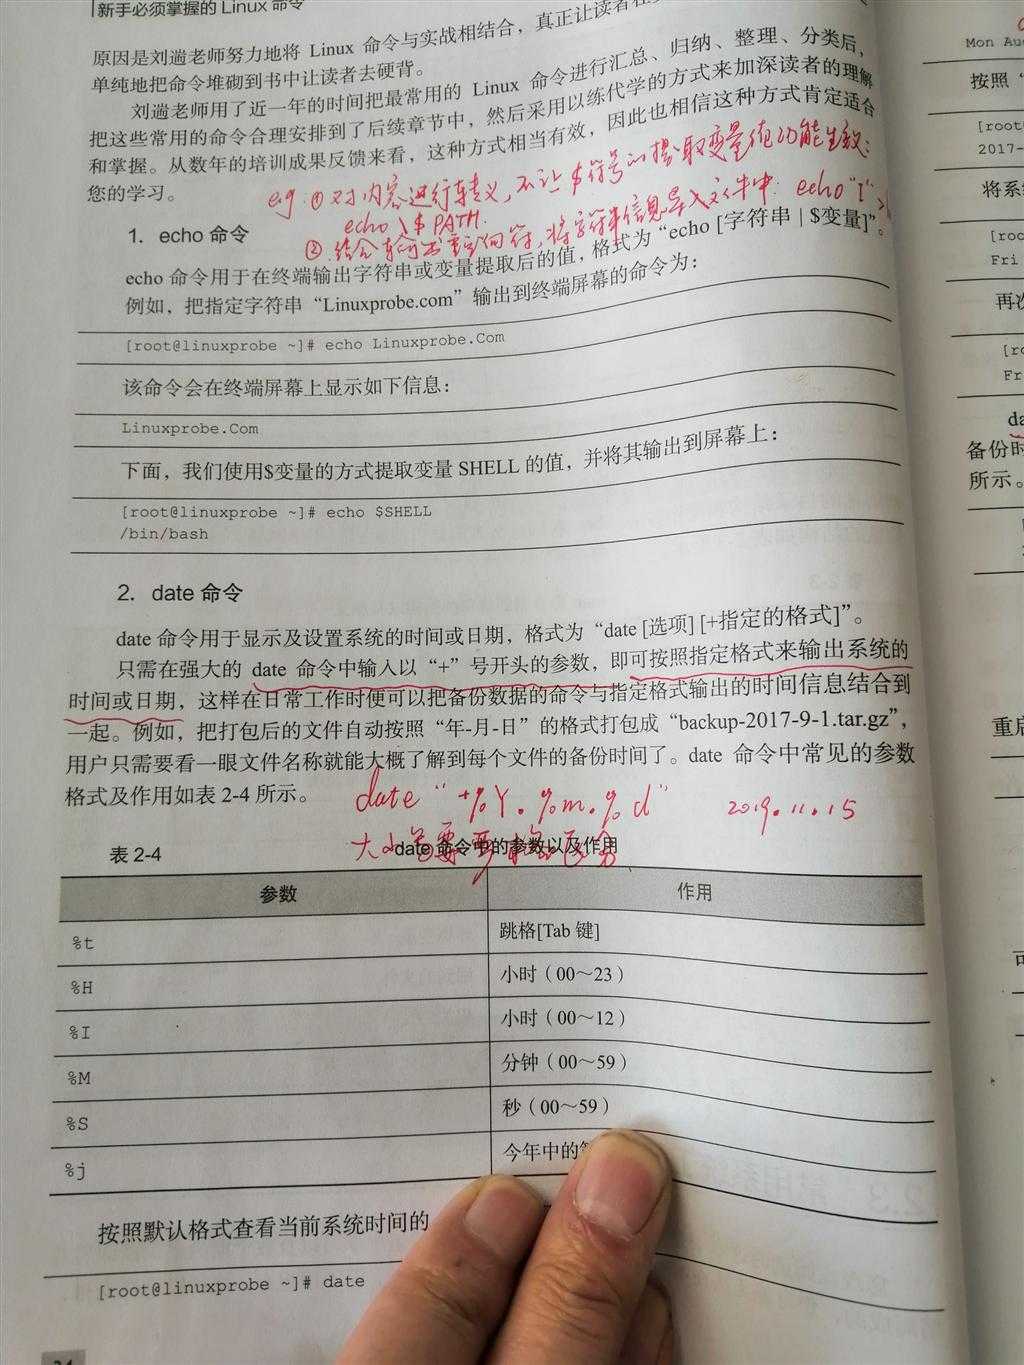 新手必须掌握的 Linux 命令
原因是刘遄老师努力地将 Linux 命令与实战相结合，真正让读者在
单纯地把命令堆砌到书中让读者去硬背。
刘遄老师用了近一年的时间把最常用的 Linux 命令进行汇总、归纳、整理、分类后，
把这些常用的命令合理安排到了后续章节中，然后采用以练代学的方式来加深读者的理解
和掌握。从数年的培训成果反馈来看，这种方式相当有效，因此也相信这种方式肯定适合
您的学习。
eg：① 对内容进行转义，不让 $符号的提取变量值功能生效：
echo \$PATH.
1. echo 命令
将字符串信息导入文件中：echo "
echo 命令用于在终端输出字符串或变量提取后的值，格式为“echo [字符串 | $变量]”。
例如，把指定字符串“Linuxprobe.com”输出到终端屏幕的命令为：
[root@linuxprobe ~]# echo Linuxprobe.Com
该命令会在终端屏幕上显示如下信息：
Linuxprobe.Com
下面，我们使用$变量的方式提取变量 SHELL 的值，并将其输出到屏幕上：
[root@linuxprobe ~]# echo $SHELL
/bin/bash
2. date 命令
date 命令用于显示及设置系统的时间或日期，格式为“date [选项] [+指定的格式]”。
只需在强大的 date 命令中输入以“+”号开头的参数，即可按照指定格式来输出系统的
时间或日期，这样在日常工作时便可以把备份数据的命令与指定格式输出的时间信息结合到
一起。例如，把打包后的文件自动按照“年-月-日”的格式打包成“backup-2017-9-1.tar.gz”，
用户只需要看一眼文件名称就能大概了解到每个文件的备份时间了。date 命令中常见的参数
格式及作用如表 2-4 所示。
date "+%Y.%m.%d" 2019.11.15
大小写要严格区分
表 2-4 date 命令中的参数以及作用
参数 作用
%t 跳格[Tab 键]
%H 小时（00～23）
%I 小时（00～12）
%M 分钟（00～59）
%S 秒（00～59）
%j 今年中的
按照默认格式查看当前系统时间的
[root@linuxprobe ~]# date
Mon Au
按照“
[root
2017-
将系
[roo
Fri
再次
[ro
Fr
da
备份时
所示。
重启
可